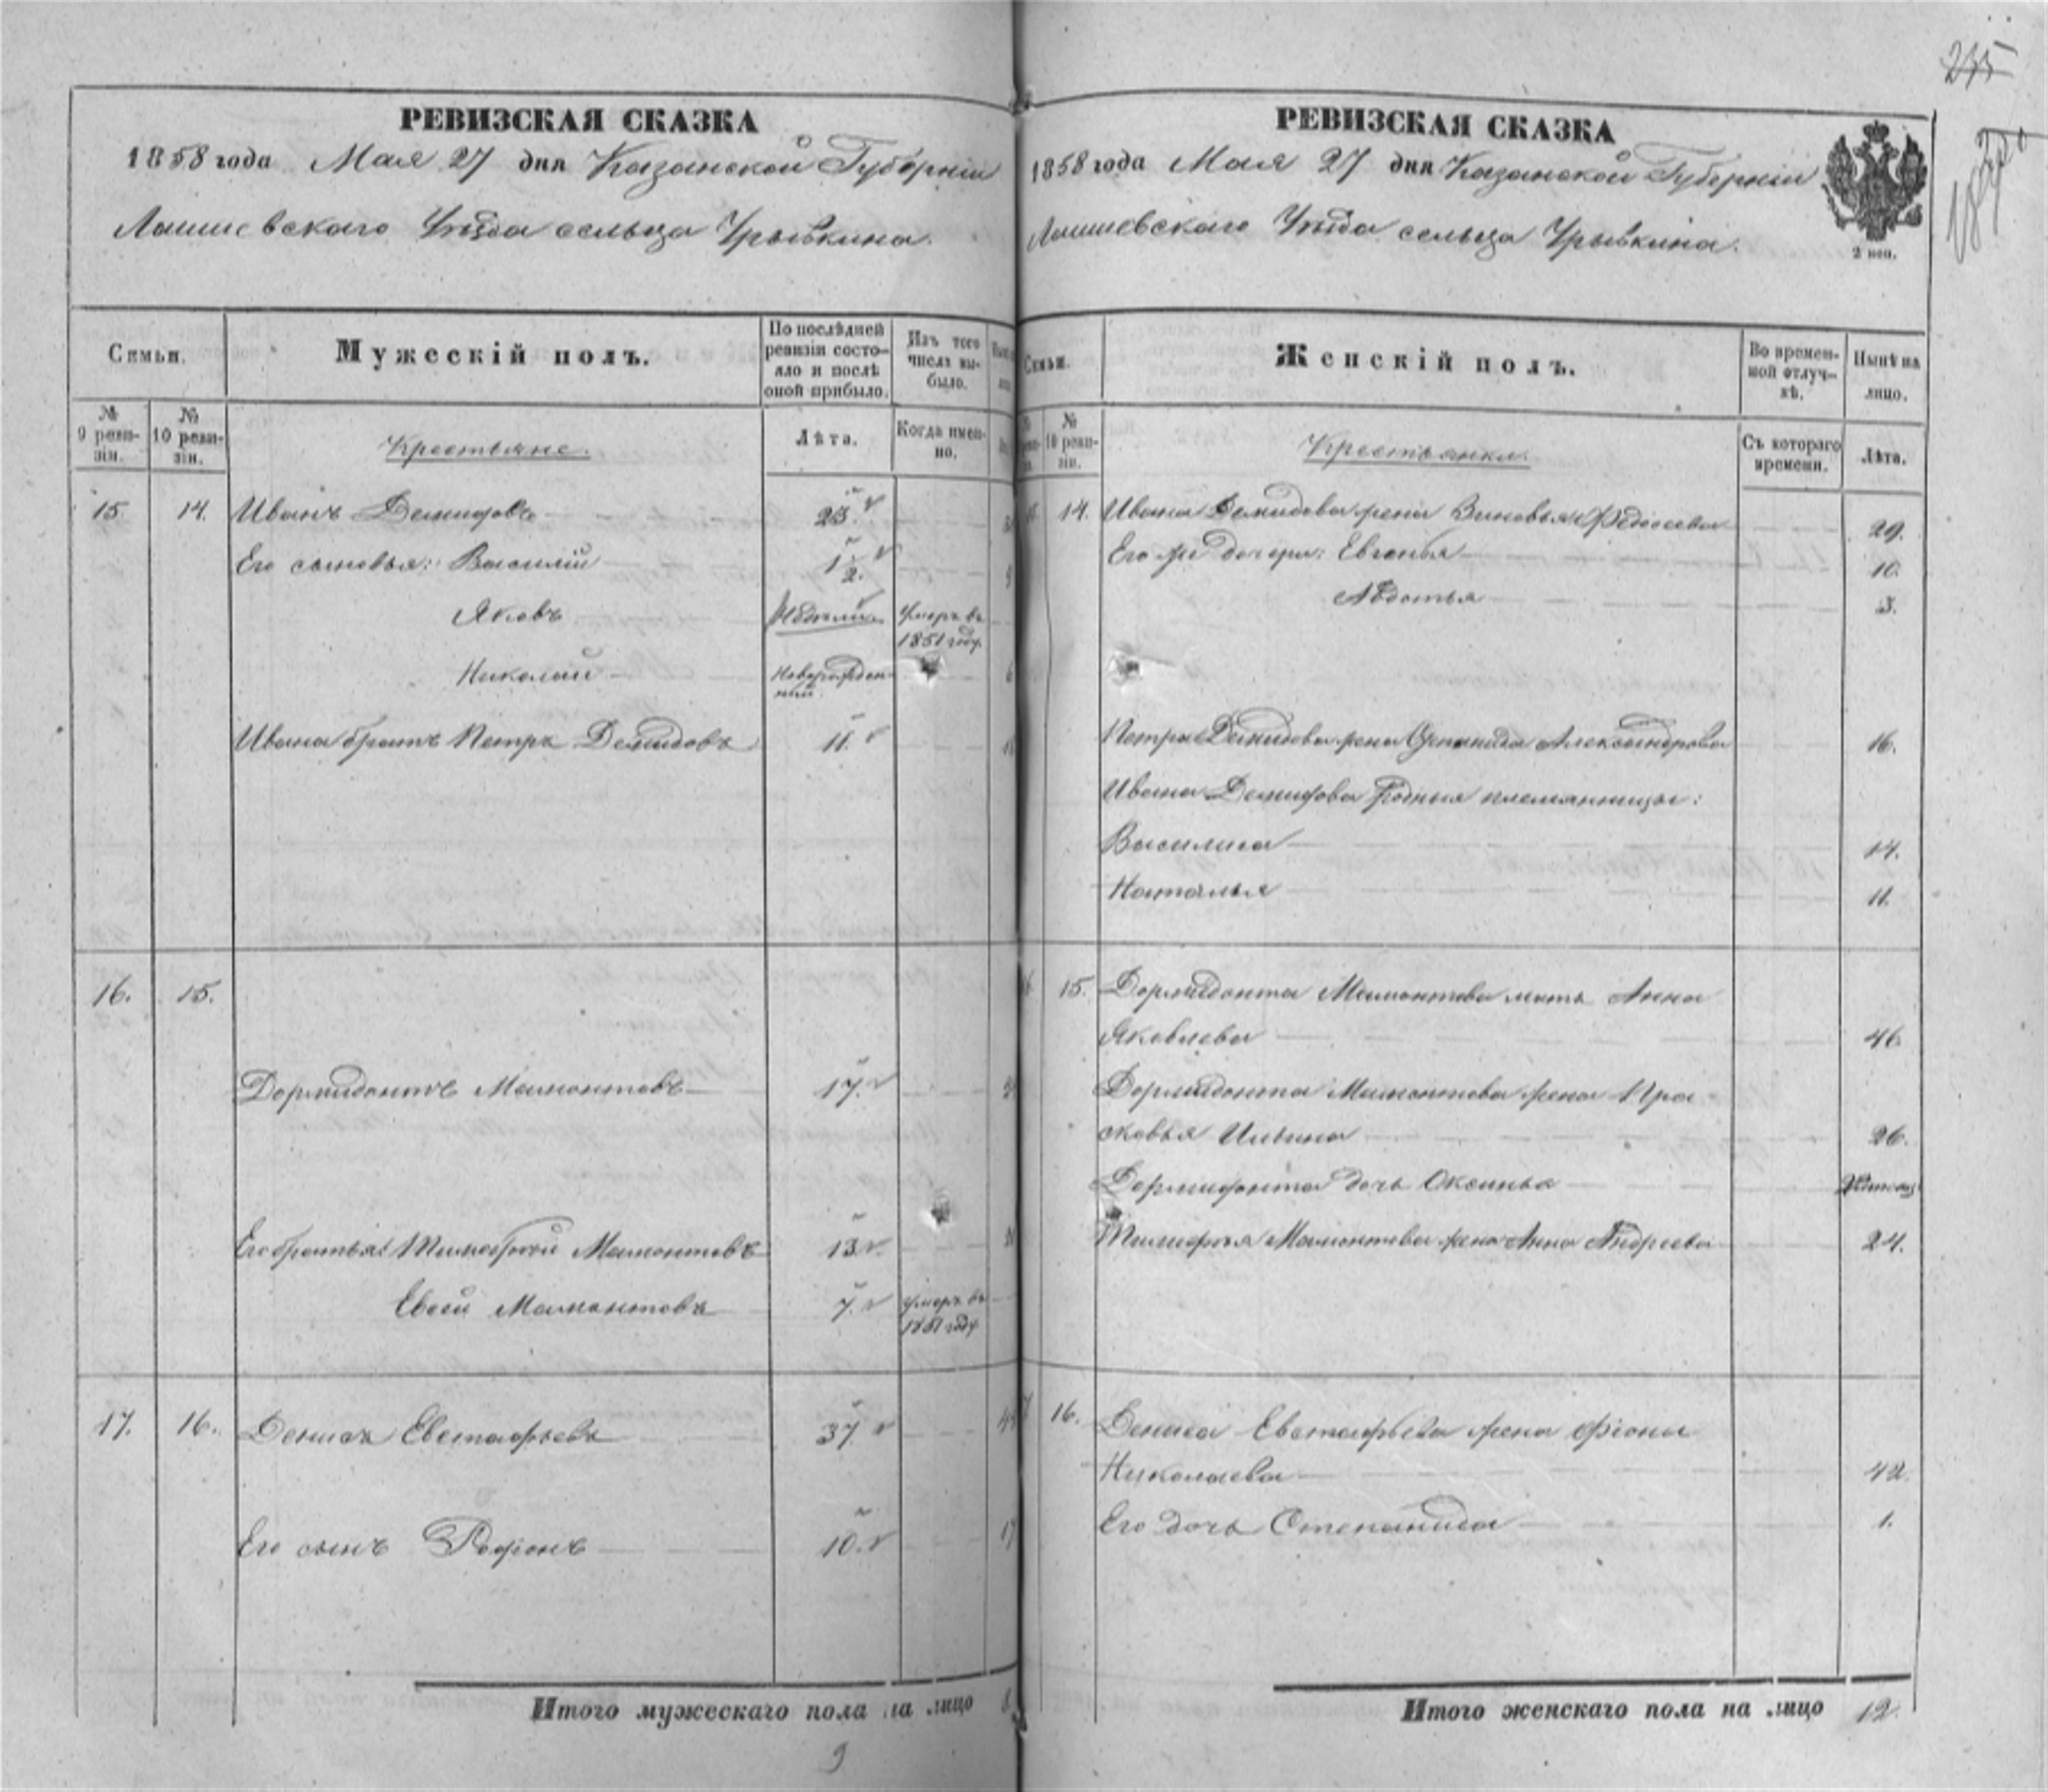 РЕВИЗСКАЯ СКАЗКА
1858 года Мая 27 дня Казанской Губерніи
Лаишевскаго Уѣзда сельца Урывкина.
Семьи.
Мужескій полъ.
По послѣдней ревизіи состояло и послѣ оной прибыло.
Изъ того числа выбыло.
№ 9 ревизіи.
№ 10 ревизіи.
Крестьяне.
Лѣта.
Когда именно.
15. 14. Иванъ Демидовъ 23.
Его сыновья: Василій 1 1/2.
Яковъ Умеръ въ 1851 году.
Николай Новорожденный.
Ивана братъ Петръ Демидовъ 11.
16. 15.
Дормидонтъ Мамонтовъ 17.
Его братья: Тимофей Мамонтовъ 13.
Евсей Мамонтовъ 7. Умеръ въ 1851 году
17. 16. Денисъ Евстафьевъ 37.
Его сынъ Родіонъ 10.
Итого мужескаго пола на лицо
9
245
РЕВИЗСКАЯ СКАЗКА
1858 года Мая 27 дня Казанской Губерніи
Лаишевскаго Уѣзда сельца Урывкина.
2 коп.
Семьи.
Женскій полъ.
Во временной отлучкѣ.
Нынѣ на лицо.
№ 10 ревизіи.
Крестьянки.
Съ котораго времени.
Лѣта.
14. Ивана Демидова жена Зиновья Федосеева 29.
Его же дочери: Евгенья 10.
Авдотья 3.
Петра Демидова жена Степанида Александрова 16.
Ивана Демидова родныя племянницы:
Василиса 14.
Наталья 11.
15. Дормидонта Мамонтова мать Анна
Яковлева 46.
Дормидонта Мамонтова жена Пра
сковья Ильина 26.
Дормидонта дочь Оксинья
Тимофея Мамонтова жена Анна Андреева 24.
16. Дениса Евстафьева жена Фіона
Николаева 42.
Его дочь Степанида 1.
Итого женскаго пола на лицо 12.